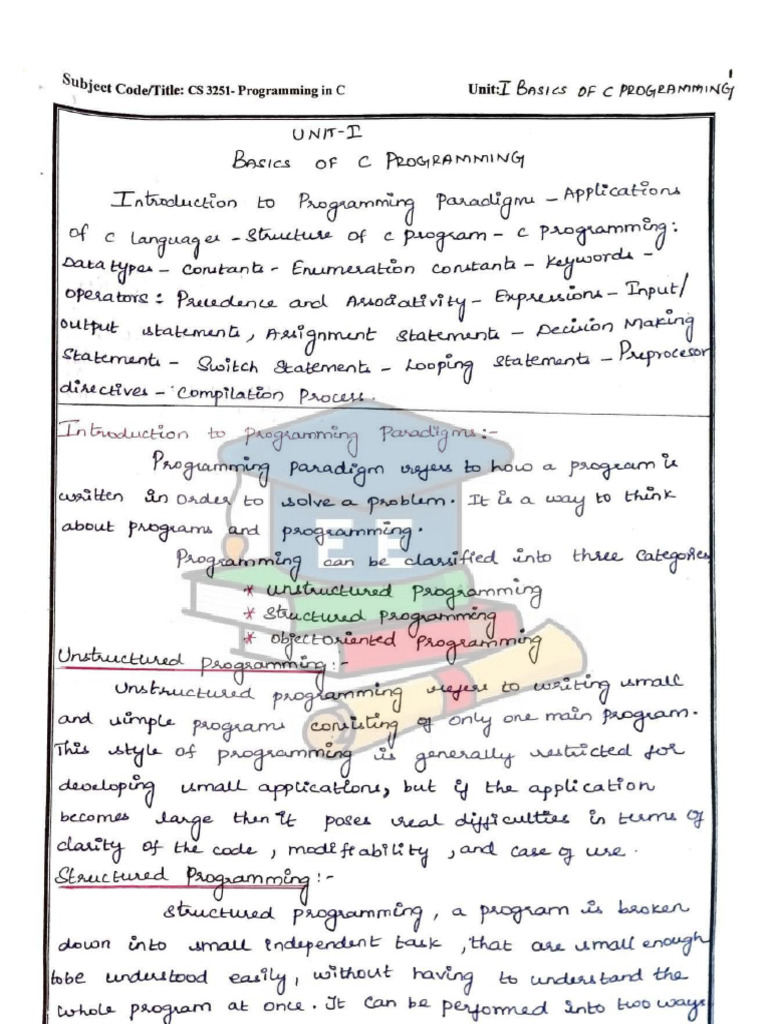 1
Subject Code/Title: CS 3251- Programming in C Unit: I BASICS OF C PROGRAMMING
UNIT-I
BASICS OF C PROGRAMMING
Introduction to Programming Paradigms - Applications
of C Language - Structure of C program - C programming:
Data types - Constants - Enumeration constants - Keywords -
operators: Precedence and Associativity - Expressions - Input/
output statements, Assignment statements - Decision Making
Statements - Switch Statements - Looping statements - Preprocesor
directives - Compilation Process.
Introduction to programming Paradigms:-
Programming paradigm refers to how a program is
written in order to solve a problem. It is a way to think
about programs and programming.
Programming can be classified into three categories
* unstructured programming
* structured programming
* object oriented programming
EE
Unstructured programming:-
Unstructured programming refers to writing small
and simple programs consisting of only one main program.
This style of programming is generally restricted for
developing small applications, but if the application
becomes large then it poses real difficulties in terms of
clarity of the code, modifiability, and ease of use.
Structured Programming:-
Structured programming, a program is broken
down into small independent task, that are small enough
tobe understood easily, without having to understand the
whole program at once. It can be performed into two ways